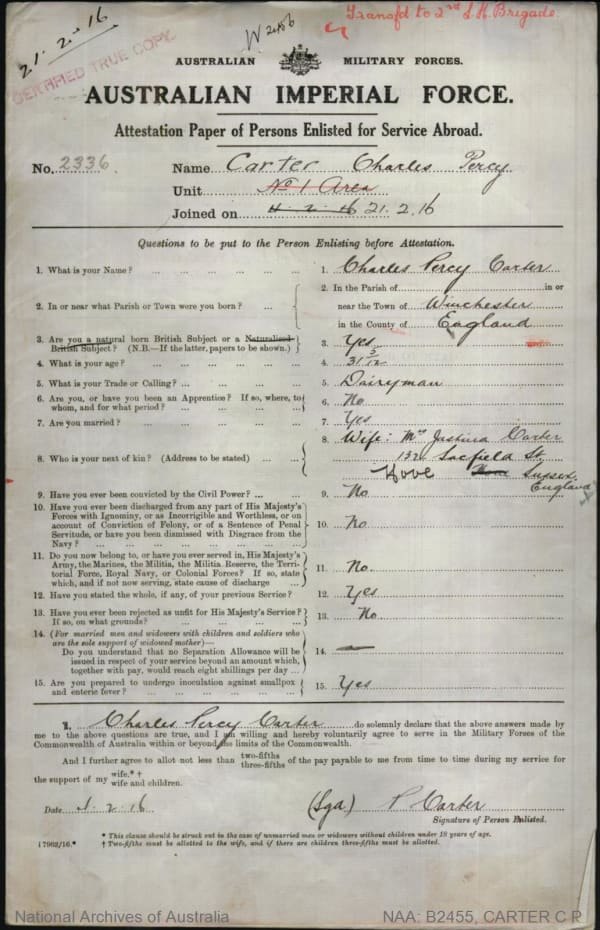 21. 2. 16
CERTIFIED TRUE COPY.
Transfd to 2nd L.H. Brigade
AUSTRALIAN MILITARY FORCES.
AUSTRALIAN IMPERIAL FORCE.
Attestation Paper of Persons Enlisted for Service Abroad.
No. 2336 Name Carter Charles Percy
Unit No 1 Area
Joined on 21.2.16
Questions to be put to the Person Enlisting before Attestation.
1. What is your Name? ... 1. Charles Percy Carter
2. In or near what Parish or Town were you born? ... 2. In the Parish of in or
near the Town of Winchester
in the County of England
3. Are you a natural born British Subject or a Naturalised British Subject? (N.B.—If the latter, papers to be shown.) 3. Yes
4. What is your age? ... 4. 31 3/12
5. What is your Trade or Calling? ... 5. Dairyman
6. Are you, or have you been an Apprentice? If so, where, to whom, and for what period? ... 6. No
7. Are you married? ... 7. Yes
8. Who is your next of kin? (Address to be stated) ... 8. Wife: Mrs Carter
132 St.
Hove Sussex
England
9. Have you ever been convicted by the Civil Power? ... 9. No
10. Have you ever been discharged from any part of His Majesty's
Forces with Ignominy, or as Incorrigible and Worthless, or on
account of Conviction of Felony, or of a Sentence of Penal
Servitude, or have you been dismissed with Disgrace from the
Navy? ... 10. No
11. Do you now belong to, or have you ever served in, His Majesty's
Army, the Marines, the Militia, the Militia Reserve, the Terri-
torial Force, Royal Navy, or Colonial Forces? If so, state
which, and if not now serving, state cause of discharge ... 11. No
12. Have you stated the whole, if any, of your previous Service? 12. Yes
13. Have you ever been rejected as unfit for His Majesty's Service?
If so, on what grounds? ... 13. No
14. (For married men and widowers with children and soldiers who
are the sole support of widowed mother)—
Do you understand that no Separation Allowance will be
issued in respect of your service beyond an amount which,
together with pay, would reach eight shillings per day ... 14. —
15. Are you prepared to undergo inoculation against smallpox
and enteric fever? ... 15. Yes
I, Charles Percy Carter do solemnly declare that the above answers made by
me to the above questions are true, and I am willing and hereby voluntarily agree to serve in the Military Forces of the
Commonwealth of Australia within or beyond the limits of the Commonwealth.
And I further agree to allot not less than two-fifths three-fifths of the pay payable to me from time to time during my service for
the support of my wife.* † wife and children.
Date 1. 2. 16 (Sgd.) P Carter
Signature of Person Enlisted.
* This clause should be struck out in the case of unmarried men or widowers without children under 18 years of age.
17962/16.* † Two-fifths must be allotted to the wife, and if there are children three-fifths must be allotted.
National Archives of Australia NAA: B2455, CARTER C P